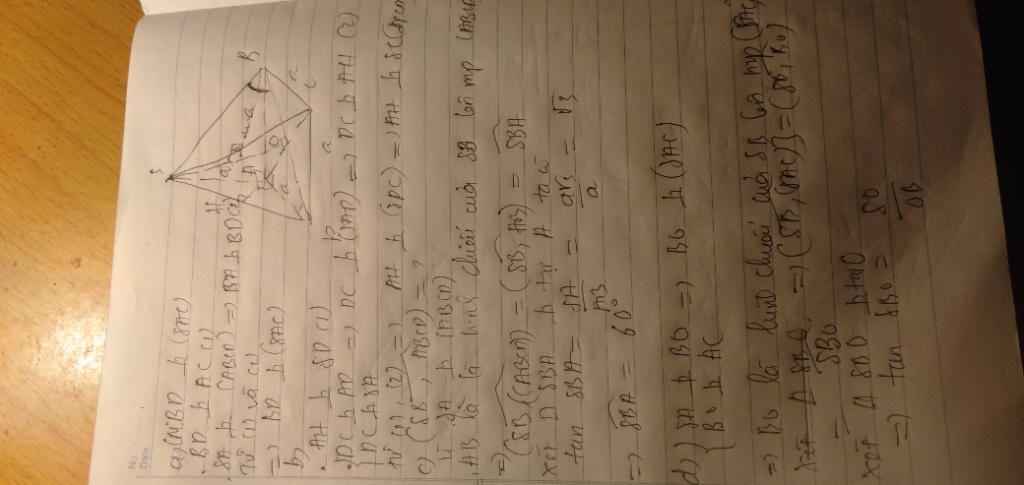 No.
Date
S
B
a
H
a
O
a
C
a
a) CM BD h (SAC)
. BD h AC (1)
. SA h (ABCD) => SA h BD (2)
Từ (1) và (2)
=> BD h (SAC)
b)
. AH h SD (1)
. { DC h AD => DC h (SAD) => DC h AH (2)
{ DC h SA
từ (1), (2) => AH h (SDC) => AH h SC
c) (SB, (ABCD) = ?
Vì SA h (ABCD)
AB là hình chiếu của SB lên mp (ABCD)
=> (SB, (ABCD)) = (SB, AB) = SBA
xét Δ SBA h tại A ta có
tan SBA = SA/AB = a√3/a = √3
=> SBA = 60°
d) { SA h BO => BO h (SAC)
{ BO h AC
=> BO là hình chiếu của SB lên mp (SAC)
=> (SB, (SAC)) = (SB, BO)
= SBO
xét Δ SBO h tại O
=> tan SBO = SO/OB